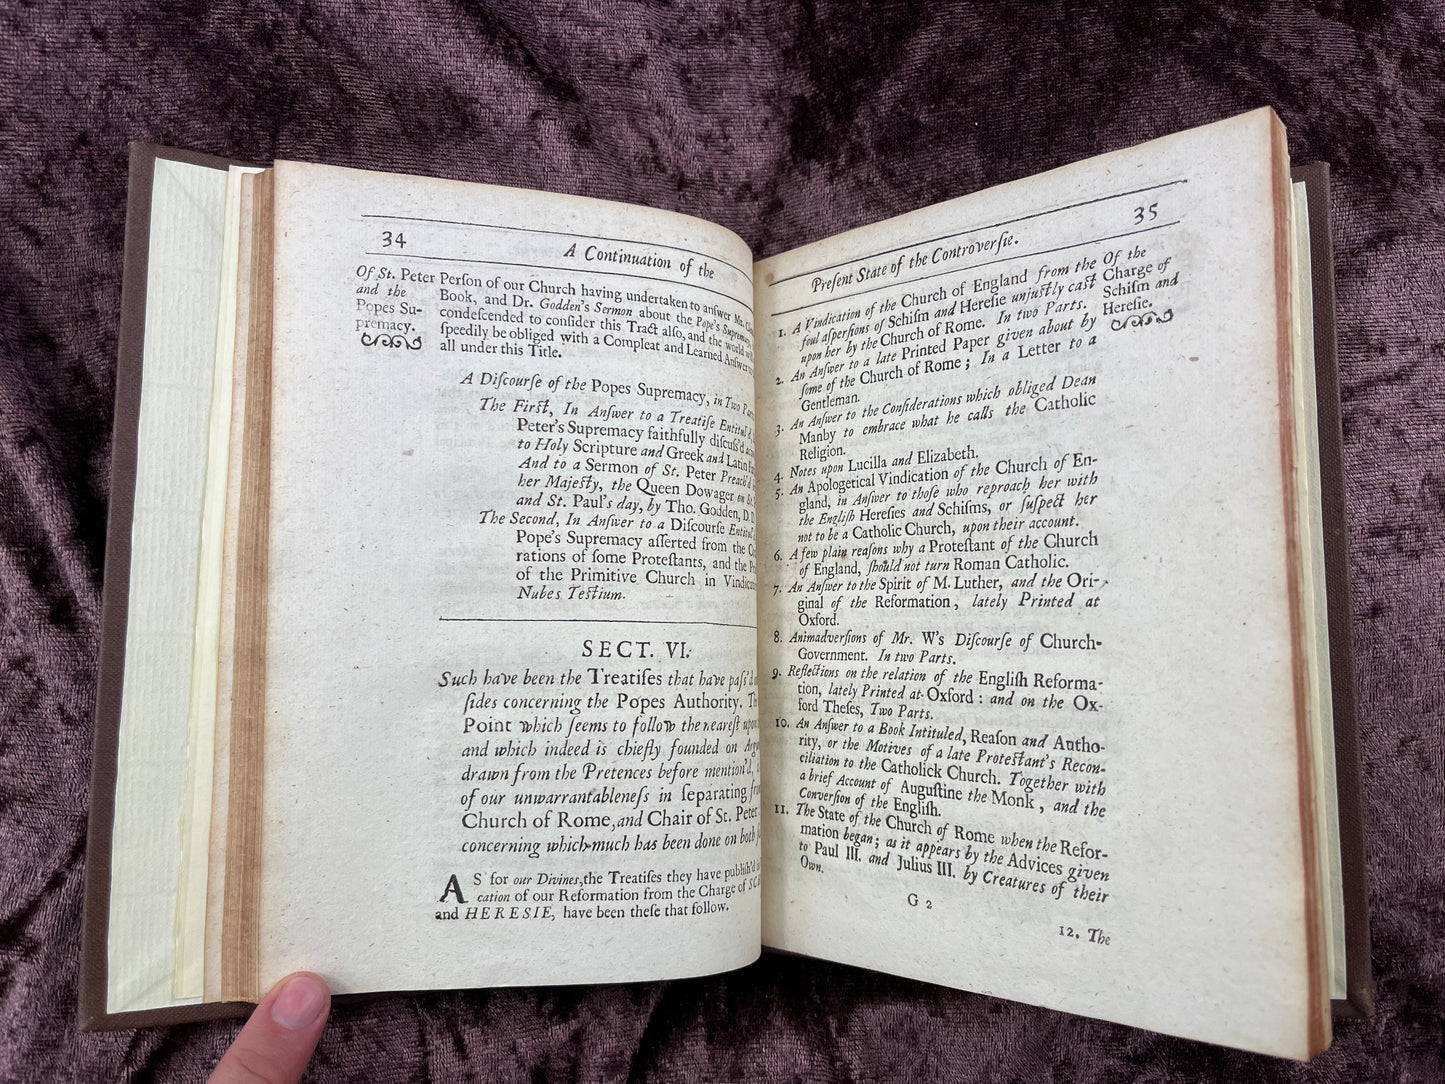 34
A Continuation of the
Of St. Peter
and the
Popes Su-
premacy.
Perſon of our Church having undertaken to anſwer Mr.
Book, and Dr. Godden's Sermon about the Pope's Supremacy,
condeſcended to conſider this Tract alſo, and the world
ſpeedily be obliged with a Compleat and Learned Anſwer
all under this Title.
A Diſcourſe of the Popes Supremacy, in Two
The Firſt, In Anſwer to a Treatiſe Entitul'd,
Peter's Supremacy faithfully diſcuſs'd
to Holy Scripture and Greek and Latin
And to a Sermon of St. Peter Preach'd
her Majeſty, the Queen Dowager on
and St. Paul's day, by Tho. Godden, D. D.
The Second, In Anſwer to a Diſcourſe Entitul
Pope's Supremacy aſſerted from the
rations of ſome Proteſtants, and the
of the Primitive Church in
Nubes Teſtium.
SECT. VI.
Such have been the Treatiſes that have paſs'd
ſides concerning the Popes Authority.
Point which ſeems to follow the neareſt
and which indeed is chiefly founded on
drawn from the Pretences before mention'd,
of our unwarrantableneſs in ſeparating
Church of Rome, and Chair of St. Peter
concerning which much has been done on both
AS for our Divines, the Treatiſes they have publiſh'd
cation of our Reformation from the Charge of
and HERESIE, have been theſe that follow.
Preſent State of the Controverſie.
35
1. A Vindication of the Church of England from the
foul aſperſions of Schiſm and Hereſie unjuſtly caſt
upon her by the Church of Rome. In two Parts.
2. An Anſwer to a late Printed Paper given about by
ſome of the Church of Rome; In a Letter to a
Gentleman.
3. An Anſwer to the Conſiderations which obliged Dean
Manby to embrace what he calls the Catholic
Religion.
4. Notes upon Lucilla and Elizabeth.
5. An Apologetical Vindication of the Church of En-
gland, in Anſwer to thoſe who reproach her with
the Engliſh Hereſies and Schiſms, or ſuſpect her
not to be a Catholic Church, upon their account.
6. A few plain reasons why a Proteſtant of the Church
of England, ſhould not turn Roman Catholic.
7. An Anſwer to the Spirit of M. Luther, and the Ori-
ginal of the Reformation, lately Printed at
Oxford.
8. Animadverſions of Mr. W's Diſcourſe of Church-
Government. In two Parts.
9. Reflections on the relation of the Engliſh Reforma-
tion, lately Printed at Oxford: and on the Ox-
ford Theſes, Two Parts.
10. An Anſwer to a Book Intituled, Reaſon and Autho-
rity, or the Motives of a late Proteſtant's Recon-
ciliation to the Catholick Church. Together with
a brief Account of Auguſtine the Monk, and the
Converſion of the Engliſh.
11. The State of the Church of Rome when the Refor-
mation began; as it appears by the Advices given
to Paul III. and Julius III. by Creatures of their
Own.
Of the
Charge of
Schiſm and
Hereſie.
G 2
12. The